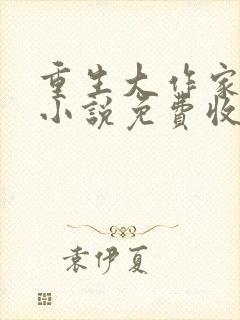 重生大作家
小说免费收
袁伊夏